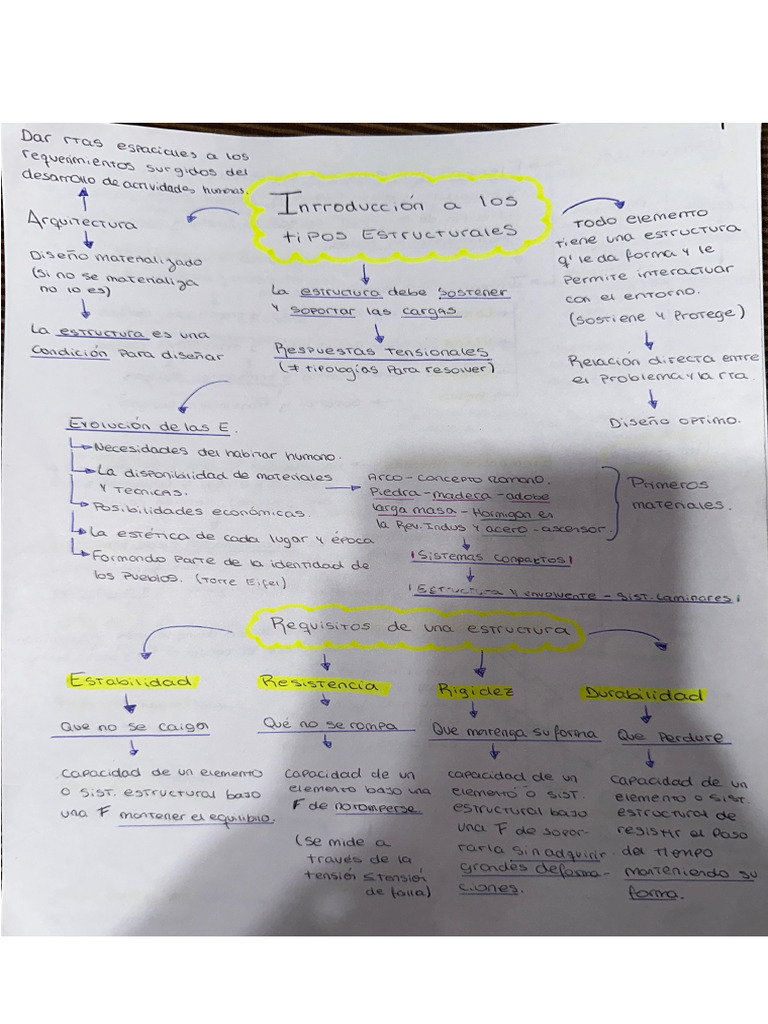 Dar rtas espaciales a los
requerimientos surgidos del
desarrollo de actividades humanas.
Arquitectura
Diseño materializado
(si no se materializa
no lo es)
La estructura es una
condición para diseñar
Introducción a los
tipos Estructurales
La estructura debe sostener
y soportar las cargas
Respuestas tensionales
(≠ tipologías para resolver)
Todo elemento
tiene una estructura
q' le da forma y le
permite interactuar
con el entorno.
(Sostiene y Protege)
Relación directa entre
el problema y la rta.
Diseño optimo.
Evolución de las E.
Necesidades del habitar humano.
La disponibilidad de materiales
y tecnicas.
Posibilidades económicas.
La estética de cada lugar y época
Formando parte de la identidad de
los pueblos. (Torre Eifel)
Arco - concepto romano.
Piedra - madera - adobe
larga masa - Hormigon en
la Rev. Indus y acero - ascensor.
Primeros
materiales.
¡Sistemas compactos!
¡Estructura y envolvente - Sist. Laminares!
Requisitos de una estructura
Estabilidad
Que no se caiga
capacidad de un elemento
o sist. estructural bajo
una F mantener el equilibrio.
Resistencia
Qué no se rompa
Capacidad de un
elemento bajo una
F de no romperse.
(se mide a
través de la
tensión ≤ tensión
de falla)
Rigidez
Que matenga su forma
capacidad de un
elemento o sist.
estructural bajo
una F de sopor-
rarla sin adquirir
grandes deforma-
ciones.
Durabilidad
Que perdure
capacidad de un
elemento o sist.
estructural de
resistir el paso
del tiempo
manteniendo su
forma.